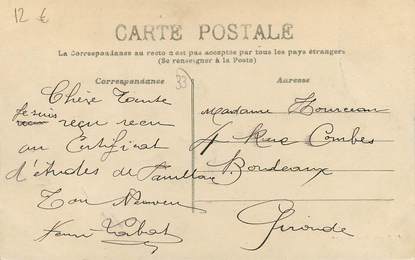 12 €
CARTE POSTALE
La Correspondance au recto n'est pas acceptée par tous les pays étrangers
(Se renseigner à la Poste)
Correspondance
33
Adresse
Chère Tante
Je suis
reçu
au Certificat
d'études de
Ton Neveu
Madame
4 Rue Combes
Bordeaux
Gironde